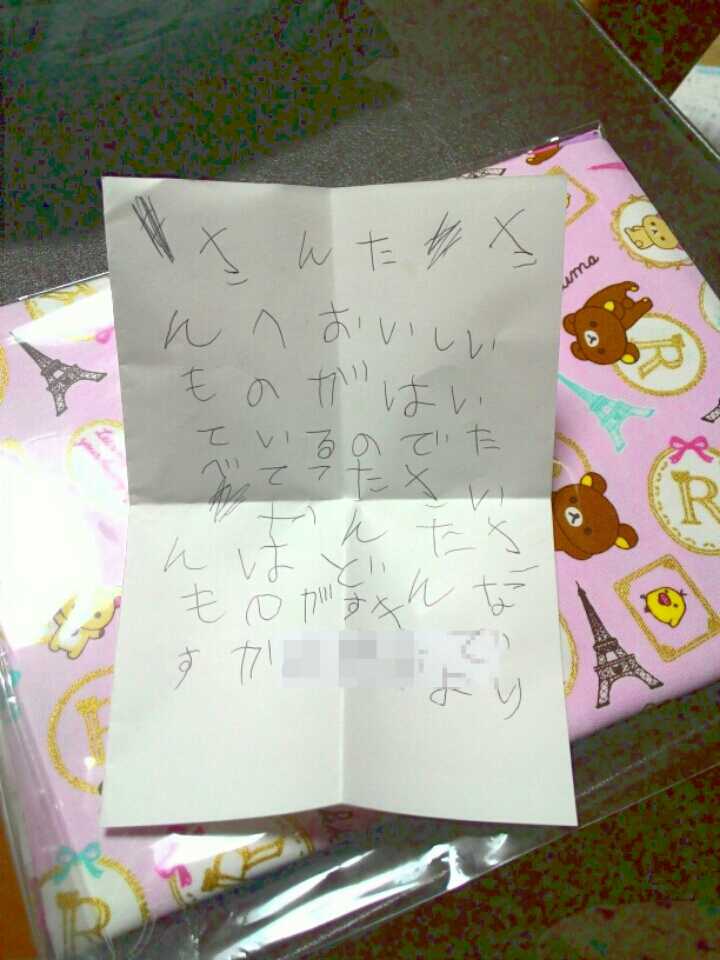 さんたさ
んへおいしい
ものがはい
ているのでた
べてったさい
さんたさ
んはど
ものがすきんな
すか で
より
R
R
R
R